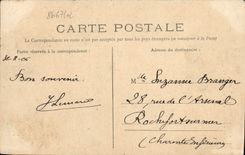 86671o2
CARTE POSTALE
La Correspondance au recto n'est pas acceptée par tous les pays étrangers (se renseigner à la Poste)
Partie réservée à la correspondance
Adresse du destinataire
Bon souvenir
Mlle Suzanne Branger
28 rue de l'Arsenal
Rochefort s mer
(Charente Inférieure)